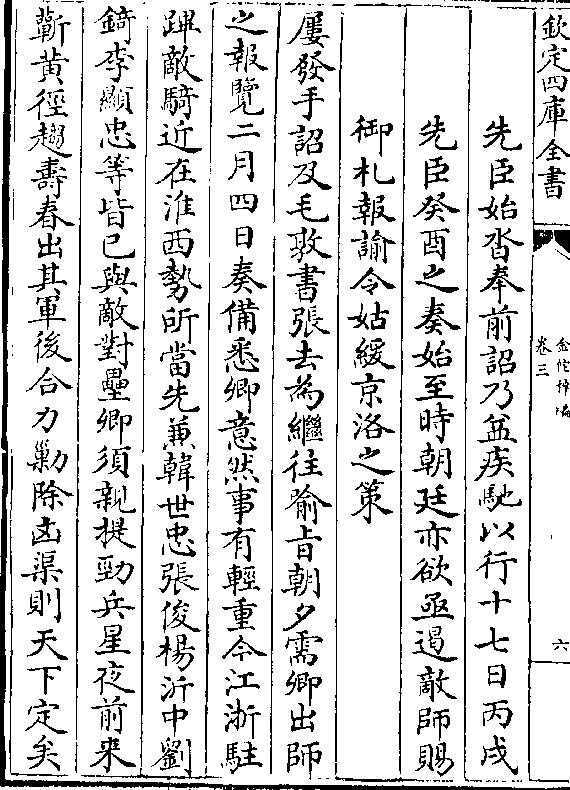 欽定四庫全書
金佗稡編
卷三
六
先臣始沓奉前詔乃益疾馳以行十七日丙戌
先臣癸酉之奏始至時朝廷亦欲亟遏敵師賜
御札報諭令姑緩京洛之策
屢發手詔及毛敦書張去為繼往喻旨朝夕需卿出師
之報覽二月四日奏備悉卿意然事有輕重今江浙駐
蹕敵騎近在淮西勢所當先兼韓世忠張俊楊沂中劉
錡李顯忠等皆已與敵對壘卿須親提勁兵星夜前來
蘄黃徑趨壽春出其軍後合力勦除凶渠則天下定矣